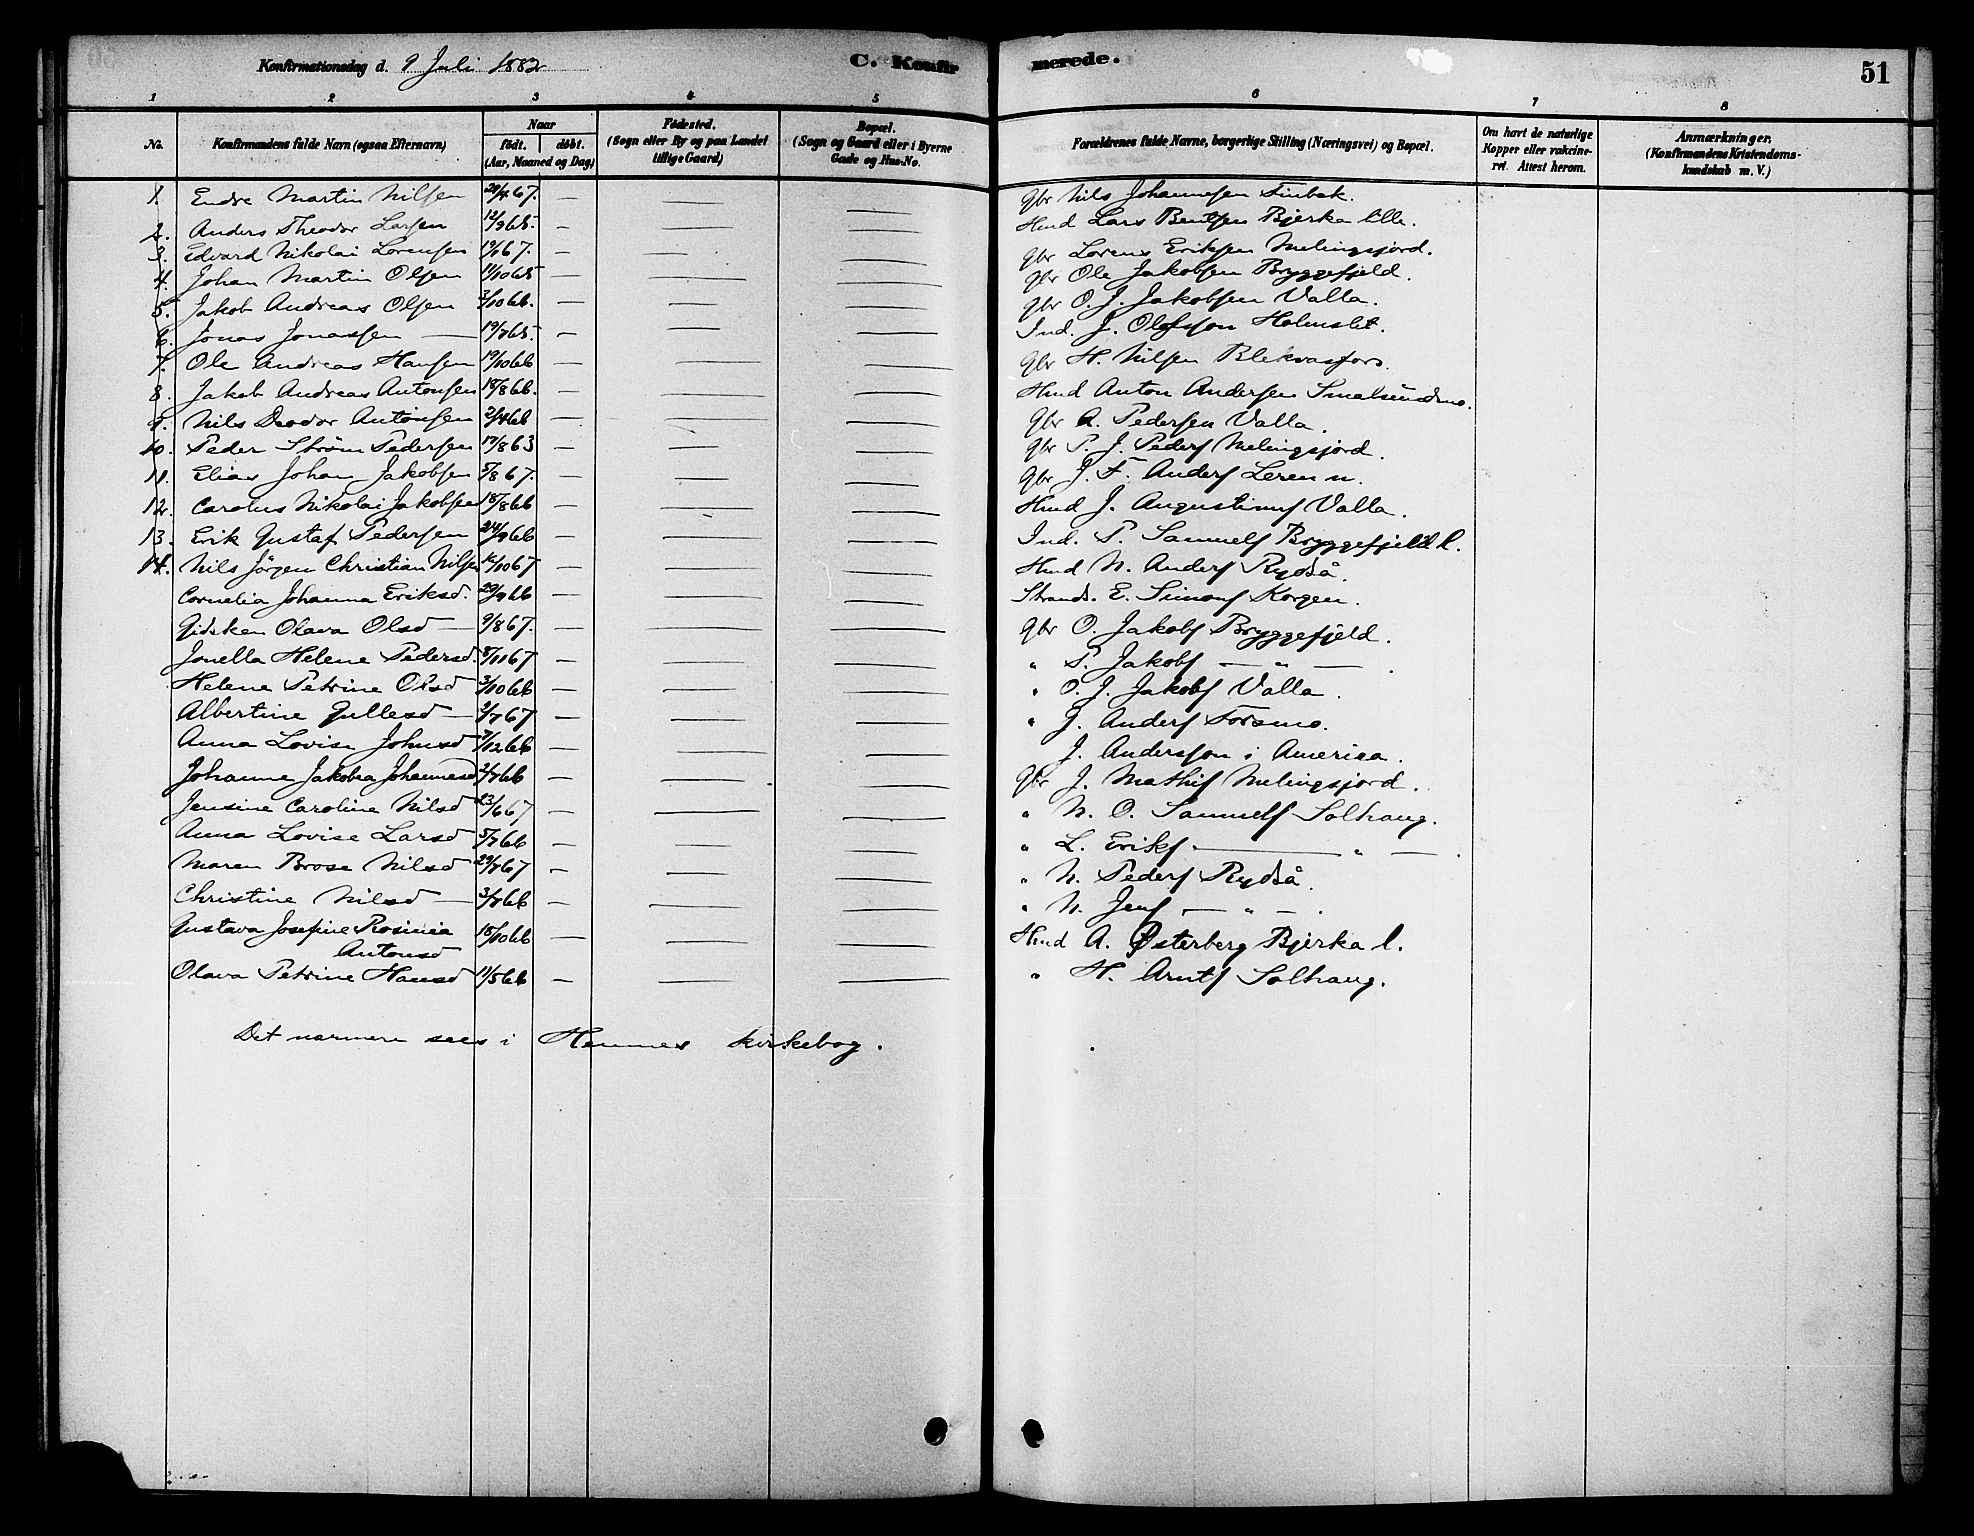 Konfirmationsdag d. 9 Juli 1882 C. Konfirmerede. 51
1 2 3 4 5 6 7 8
No. Konfirmandens fulde Navn (ogsaa Efternavn) Naar født. døbt. (Aar, Maaned og Dag) Fødested. (Sogn eller By og paa Landet tillige Gaard) Bopæl. (Sogn og Gaard eller i Byerne Gade og Hus-No. Forældrenes fulde Navne, borgerlige Stilling (Næringsvei) og Bopæl. Om havt de naturlige Kopper eller vakcineret. Attest herom. Anmærkninger, (Konfirmandens Kristendomskundskab m. V.)
1. Endre Martin Nilsen 67. — — — Gbr Nils Johannesen Finbak.
2. Anders Theodor Larsen 12/9 65. — — — Hmd Lars Bentsen Bjerka lille.
3. Edvard Nikolai Lorensen 67. — — — Gbr Lorens Eriksen Melingsjord.
4. Johan Martin Olsen 11/10 65 — — — Gbr Ole Jakobsen Bryggefjeld.
5. Jakob Andreas Olsen 3/10 66. — — — Gbr O. J. Jakobsen Valla.
6. Jonas Jonassen — 19/7 65. — — — Ind. J. Olofsson Holmslet.
7. Ole Andreas Hansen 19/10 66 — — — Gbr H. Nilsen Blekvasfors.
8. Jakob Andreas Antonsen 18/8 66. — — — Hmd Anton Andersen Smalsundmo.
9. Nils Deodor Antonsen 2/4 66 — — — Gbr A. Pedersen Valla.
10. Peder Strøm Pedersen 17/8 63 — — — Gbr P. J. Peders Melingsjord.
11. Elias Johan Jakobsen 5/8 67. — — — Gbr J. F. Anders Leren n.
12. Carolus Nikolai Jakobsen 18/8 66 — — — Hmd J. Augustinus Valla.
13. Erik Gustaf Pedersen 24/9 66 — — — Ind. P. Samuels Bryggefjeld l.
14. Nils Jörgen Christian Nilsen 10 67 — — — Hmd N. Anders Rydså.
Cornelia Johanna Eriksd. 29/9 66 — — — Strands. E. Simons Korgen.
Gidsken Olava Olsd — 9/8 67. — — — Gbr O. Jakobs Bryggefjeld.
Jonella Helene Pedersd. 8/11 67 — — — " P. Jakobs — " — .
Helene Petrine Olsd 3/10 66 — — — " O. J. Jakobs Valla.
Albertine Gullesd — 2/7 67 — — — " J. Anders Forsmo.
Anna Lovise Johnsd 7/12 66 — — — J. Andersson i America.
Johanne Jakobea Johannesd 2/7 66 — — — Gbr J. Mathis Melingsjord.
Jensine Caroline Nilsd 23/6 67 — — — " N. O. Samuels Solhaug.
Anna Lovise Larsd 5/7 66 — — — " L. Eriks — " — .
Maren Brose Nilsd 29/7 67 — — — " N. Peders Rydså.
Christine Nilsd — 3/7 66 — — — " N. Jens — " — .
Gustava Josefine Rosinia 18/10 66 — — — Hmd A. Østerberg Bjerka l.
Antonsd
Olava Petrine Hansd 11/5 66 — — — " H. Arnts Solhaug.
Det nærmere sees i Hemnes kirkebog.